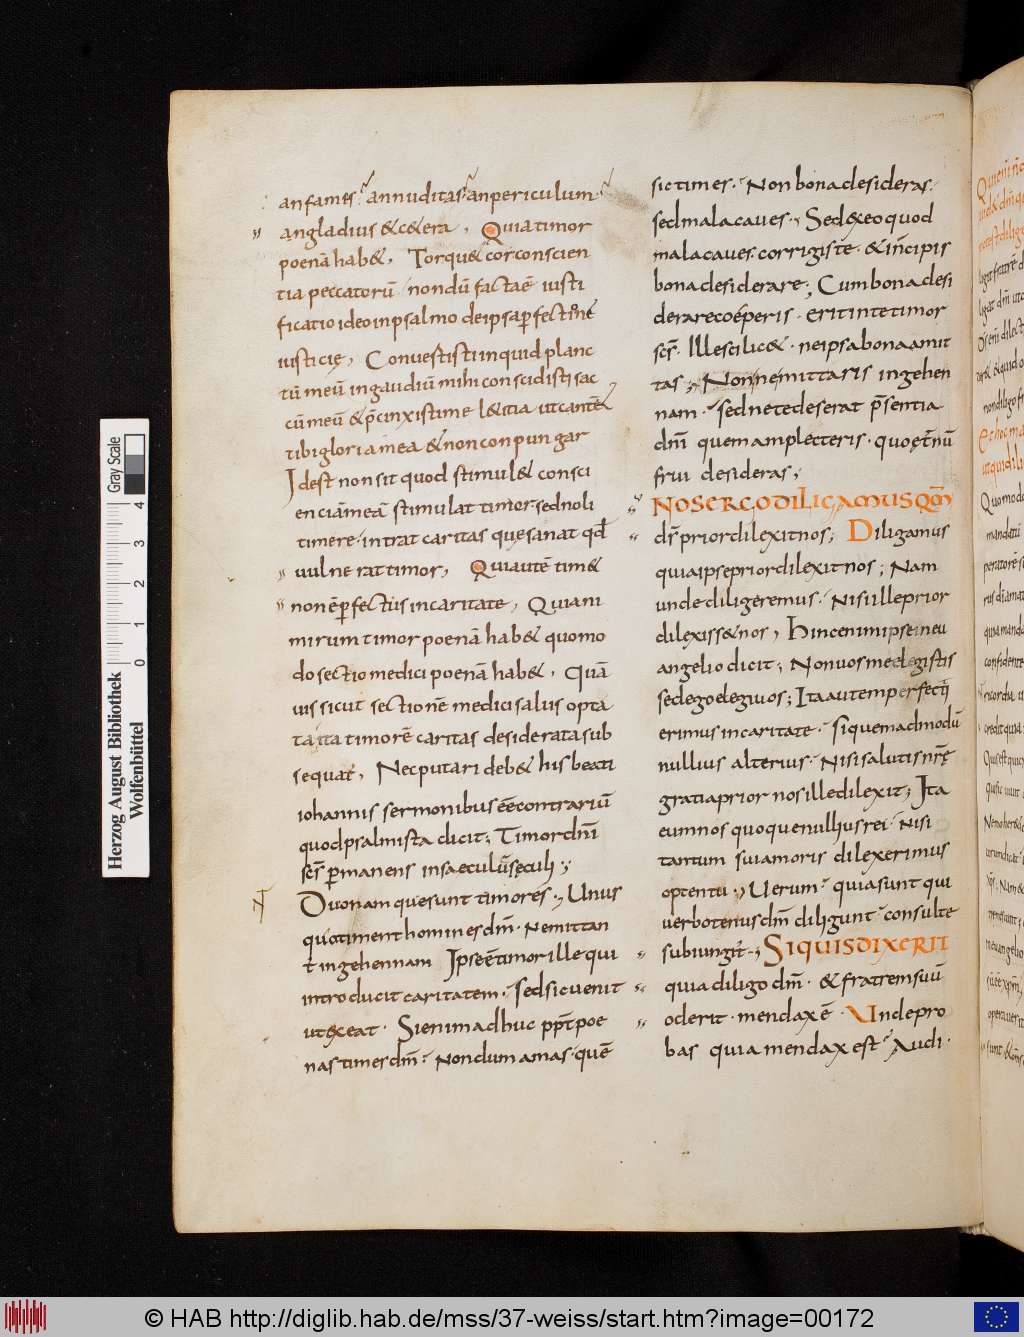 an fames? an nuditas? an periculum?
an gladius & c&era. Quia timor
poenā hab&, Torqu& cor conscien
tia peccatorū nondū facta ē iusti
ficatio ideo in psalmo de ipsa perfectione
iusticię, Conuertisti inquid planc
tū meū in gaudiū mihi conscidisti sac
cū meū & p̄cinxisti me l&itia ut cant&
tibi gloria mea & non conpungar
Id est non sit quod stimul& consci
enciā meā stimulat timor sed noli
timere intrat caritas que sanat qđ
uulnerat timor, Qui autē tim&
non ē perfectus in caritate, Quia ni
mirum timor poenā hab& quomo
do sectio medici poenā hab&, Quā
uis sicut sectionē medici salus opta
ta ita timorē caritas desiderata sub
sequat̄, Nec putari deb& his beati
iohannis sermonibus eē contrariū
quod psalmista dicit; Timor dn̄i
sc̄s permanens in saeculū seculi;
Duo nam que sunt timores; Unus
quo timent homines dm̄. Ne mittan
t̄ in gehennam Ipse ē timor ille qui
introducit caritatem. sed sic uenit
ut exeat. Si enim adhuc ppt̄ poe
nas times dm̄? Nondum amas. quē
sic times. Non bona desideras.
sed mala caues; Sed ex eo quod
mala caues. corrigis te. & incipis
bona desiderare; Cum bona desi
derare coeperis. erit in te timor
sc̄s. Ille scilic&. ne ipsa bona amit
tas; Non ne mittaris in gehen
nam. sed ne te deserat p̄sentia
dn̄i quem amplecteris. quo et̄nū
frui desideras;
NOS ERGO DILIGAMUS QM̄
ds̄ prior dilexit nos; Diligamus
quia ipse prior dilexit nos; Nam
unde diligeremus. Nisi ille prior
dilexiss& nos, Hinc enim ipse in eu
angelio dicit; Non uos me elegistis
sed ego elegi uos; Ita autem perfecti
erimus in caritate. si quemadmodū
nullius alterius. Nisi salutis nr̄ę
gratia prior nos ille dilexit; Ita
eum nos quoque nullius rei. Nisi
tantum sui amoris dilexerimus
optentu; Uerum? quia sunt qui
uerbo tenus dm̄ diligunt. consulte
subiungit; SI QUIS DIXERIT
quia diligo dm̄. & fratrem suū
oderit. mendax ē. Unde pro
bas quia mendax est? Audi.
Herzog August Bibliothek
Wolfenbüttel
0 1 2 3 4
Gray Scale
© HAB http://diglib.hab.de/mss/37-weiss/start.htm?image=00172